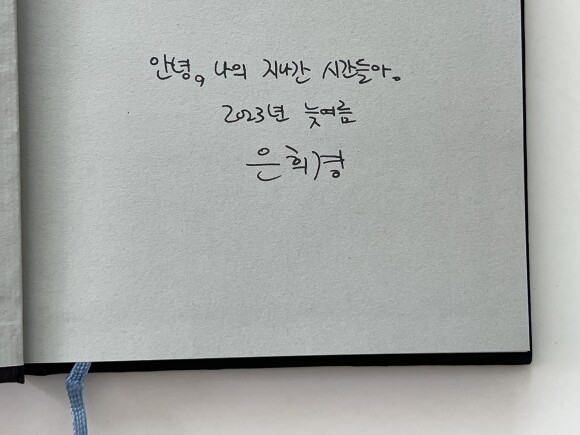 안녕, 나의 지나간 시간들아.
2023년 늦여름
은희경